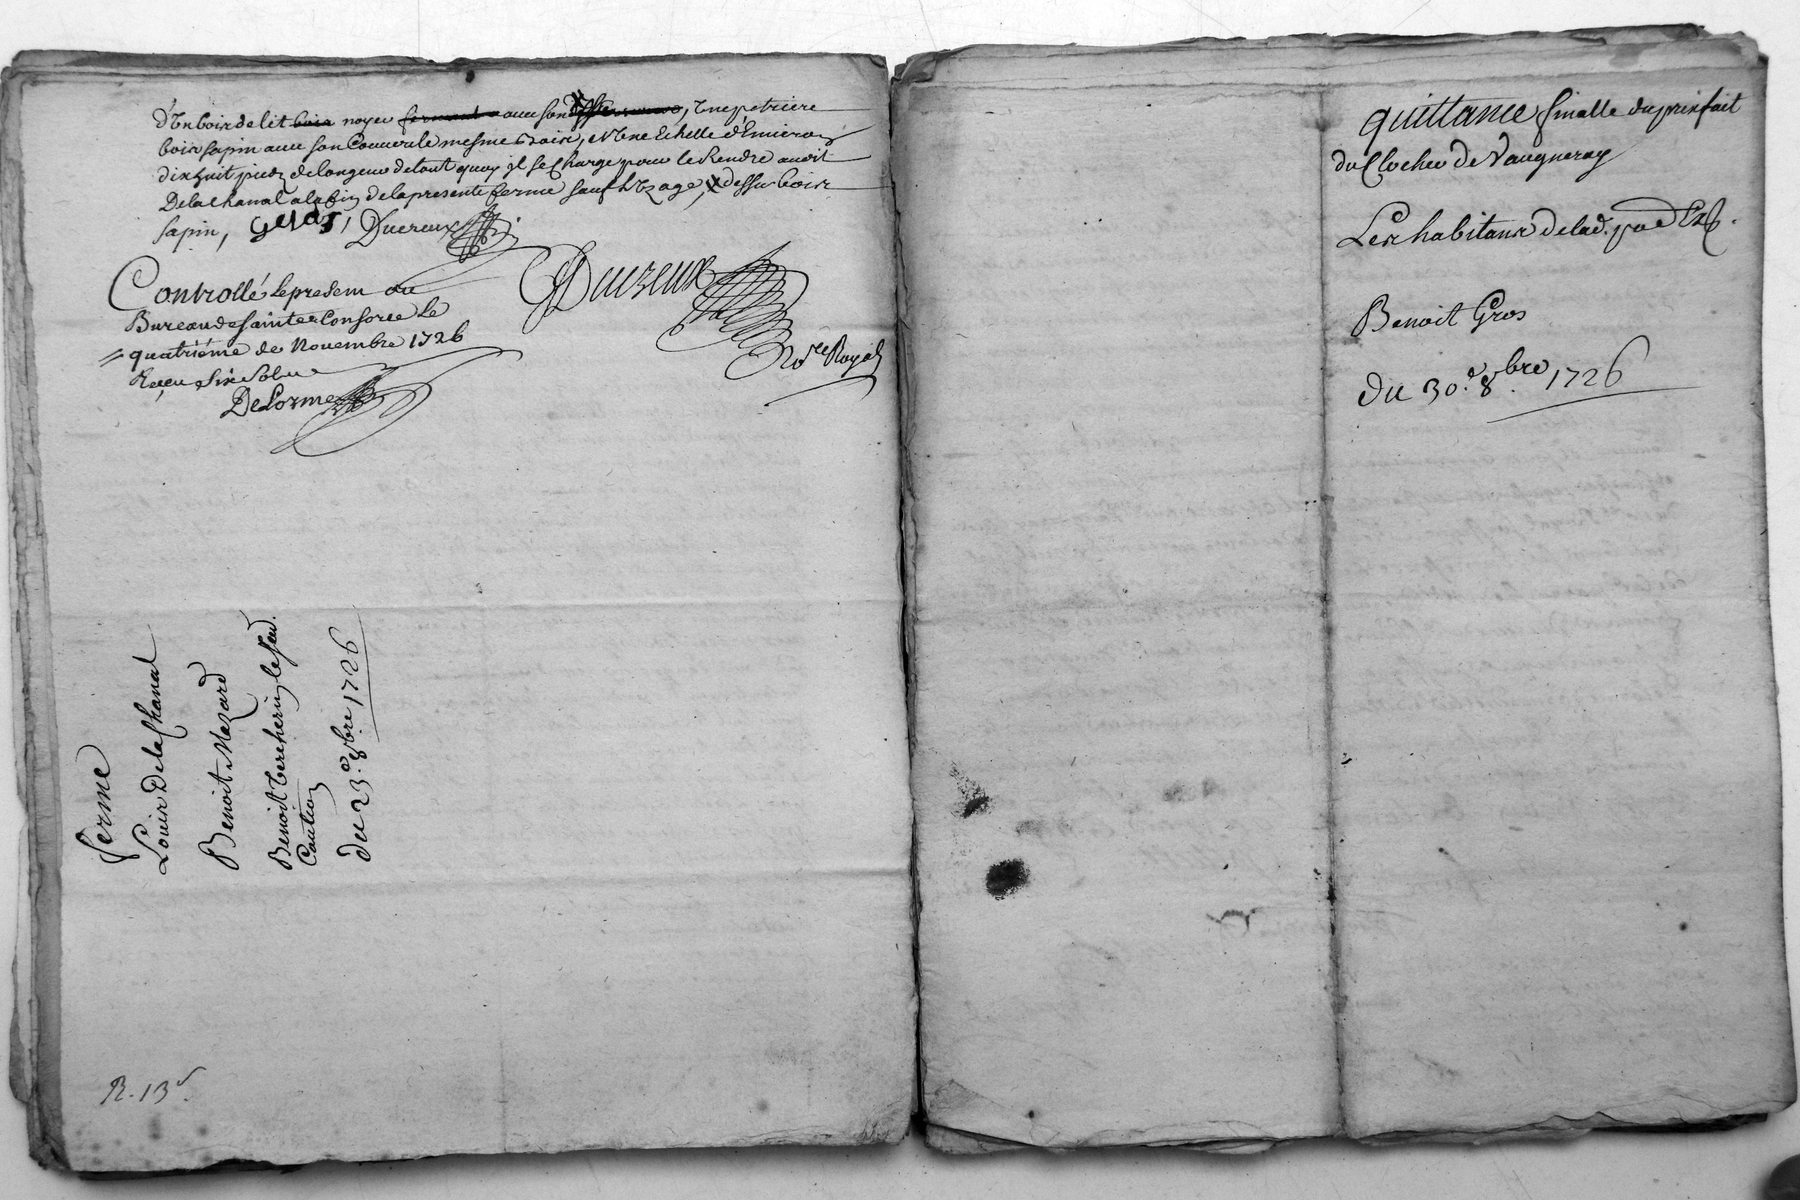 d'un bois de lit bois noyer fermant avec son, une petriere
bois sapin avec son Couvercle mesme bois, et une Echelle d'Environ
dix huit pieds de longeur de tout quoy il se Charge pour le Rendre audit
Delachanal a la fin de la presente ferme sauf l'uzage, dessu bois
sapin, Gelas, Ducreux
Ducreux
No.re Royal
Controllé le present au
Bureau de Sainte Consorce le
quatriéme de Novembre 1726
Reçeu Six Sols
DeLorme
ferme
Louis Delachanal
Benoit Mazard
Benoit
Caution
du 23.e 8bre 1726
R. 13
quittance finalle du prixfait
du Clocher de Vaugneray
Les habitans de lad.
Benoit Gros
du 30.e 8.bre 1726